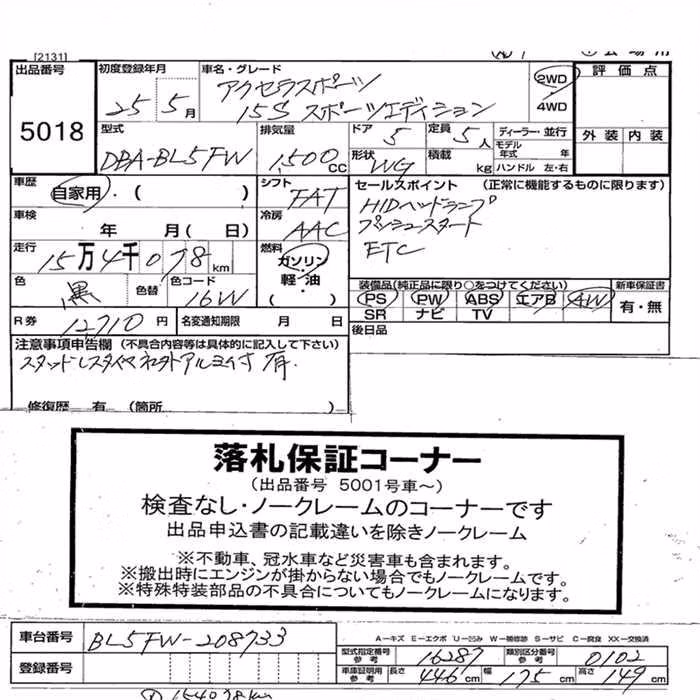 [2131]
出品番号
5018
初度登録年月
25 5月
車名・グレード
アクセラスポーツ
15S スポーツエディション
2WD
4WD
評価点
外装 内装
型式
DBA-BL5FW
排気量
1,500cc
ドア
5
定員
5人
ディーラー・並行
モデル年式 年
形状
WG
積載
kg
ハンドル 左・右
車歴
自家用・( )
シフト
FAT
セールスポイント (正常に機能するものに限ります)
HIDヘッドランプ
プッシュスタート
ETC
車検
年 月(日)
冷房
AAC
走行
15万4千078km
燃料
ガソリン
軽・油
( )
色
黒
色替
色コード
16W
装備品(純正品に限り○をつけてください)
新車保証書
PS PW ABS エアB AW
SR ナビ TV
有・無
R券
12,710円
名変通知期限 月 日
後日品
注意事項申告欄(不具合内容等は具体的に記入して下さい)
スタッドレスタイヤ 社外アルミ付 有
修復歴 有 (箇所 )
落札保証コーナー
(出品番号 5001号車~)
検査なし・ノークレームのコーナーです
出品申込書の記載違いを除きノークレーム
※不動車、冠水車など災害車も含まれます。
※搬出時にエンジンが掛からない場合でもノークレームです。
※特殊特装部品の不具合についてもノークレームになります。
車台番号
BL5FW-208733
登録番号
A-キズ E-エクボ U-凹み W-補修跡 S-サビ C-腐食 XX-交換済
型式指定番号
参考
16287
類別区分番号
参考
0102
車庫証明用
参考
長さ
446cm
幅
175cm
高さ
149cm